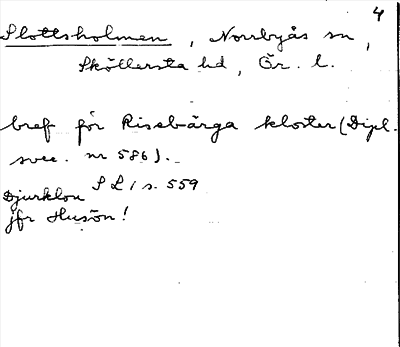 4
Slottsholmen, Norrbyås sn,
Sköllersta hd, Ör. l.
bref för Riseberga kloster (Dipl.
svec. nr 586).
Djurklou S L 1 s. 559
jfr Husön!